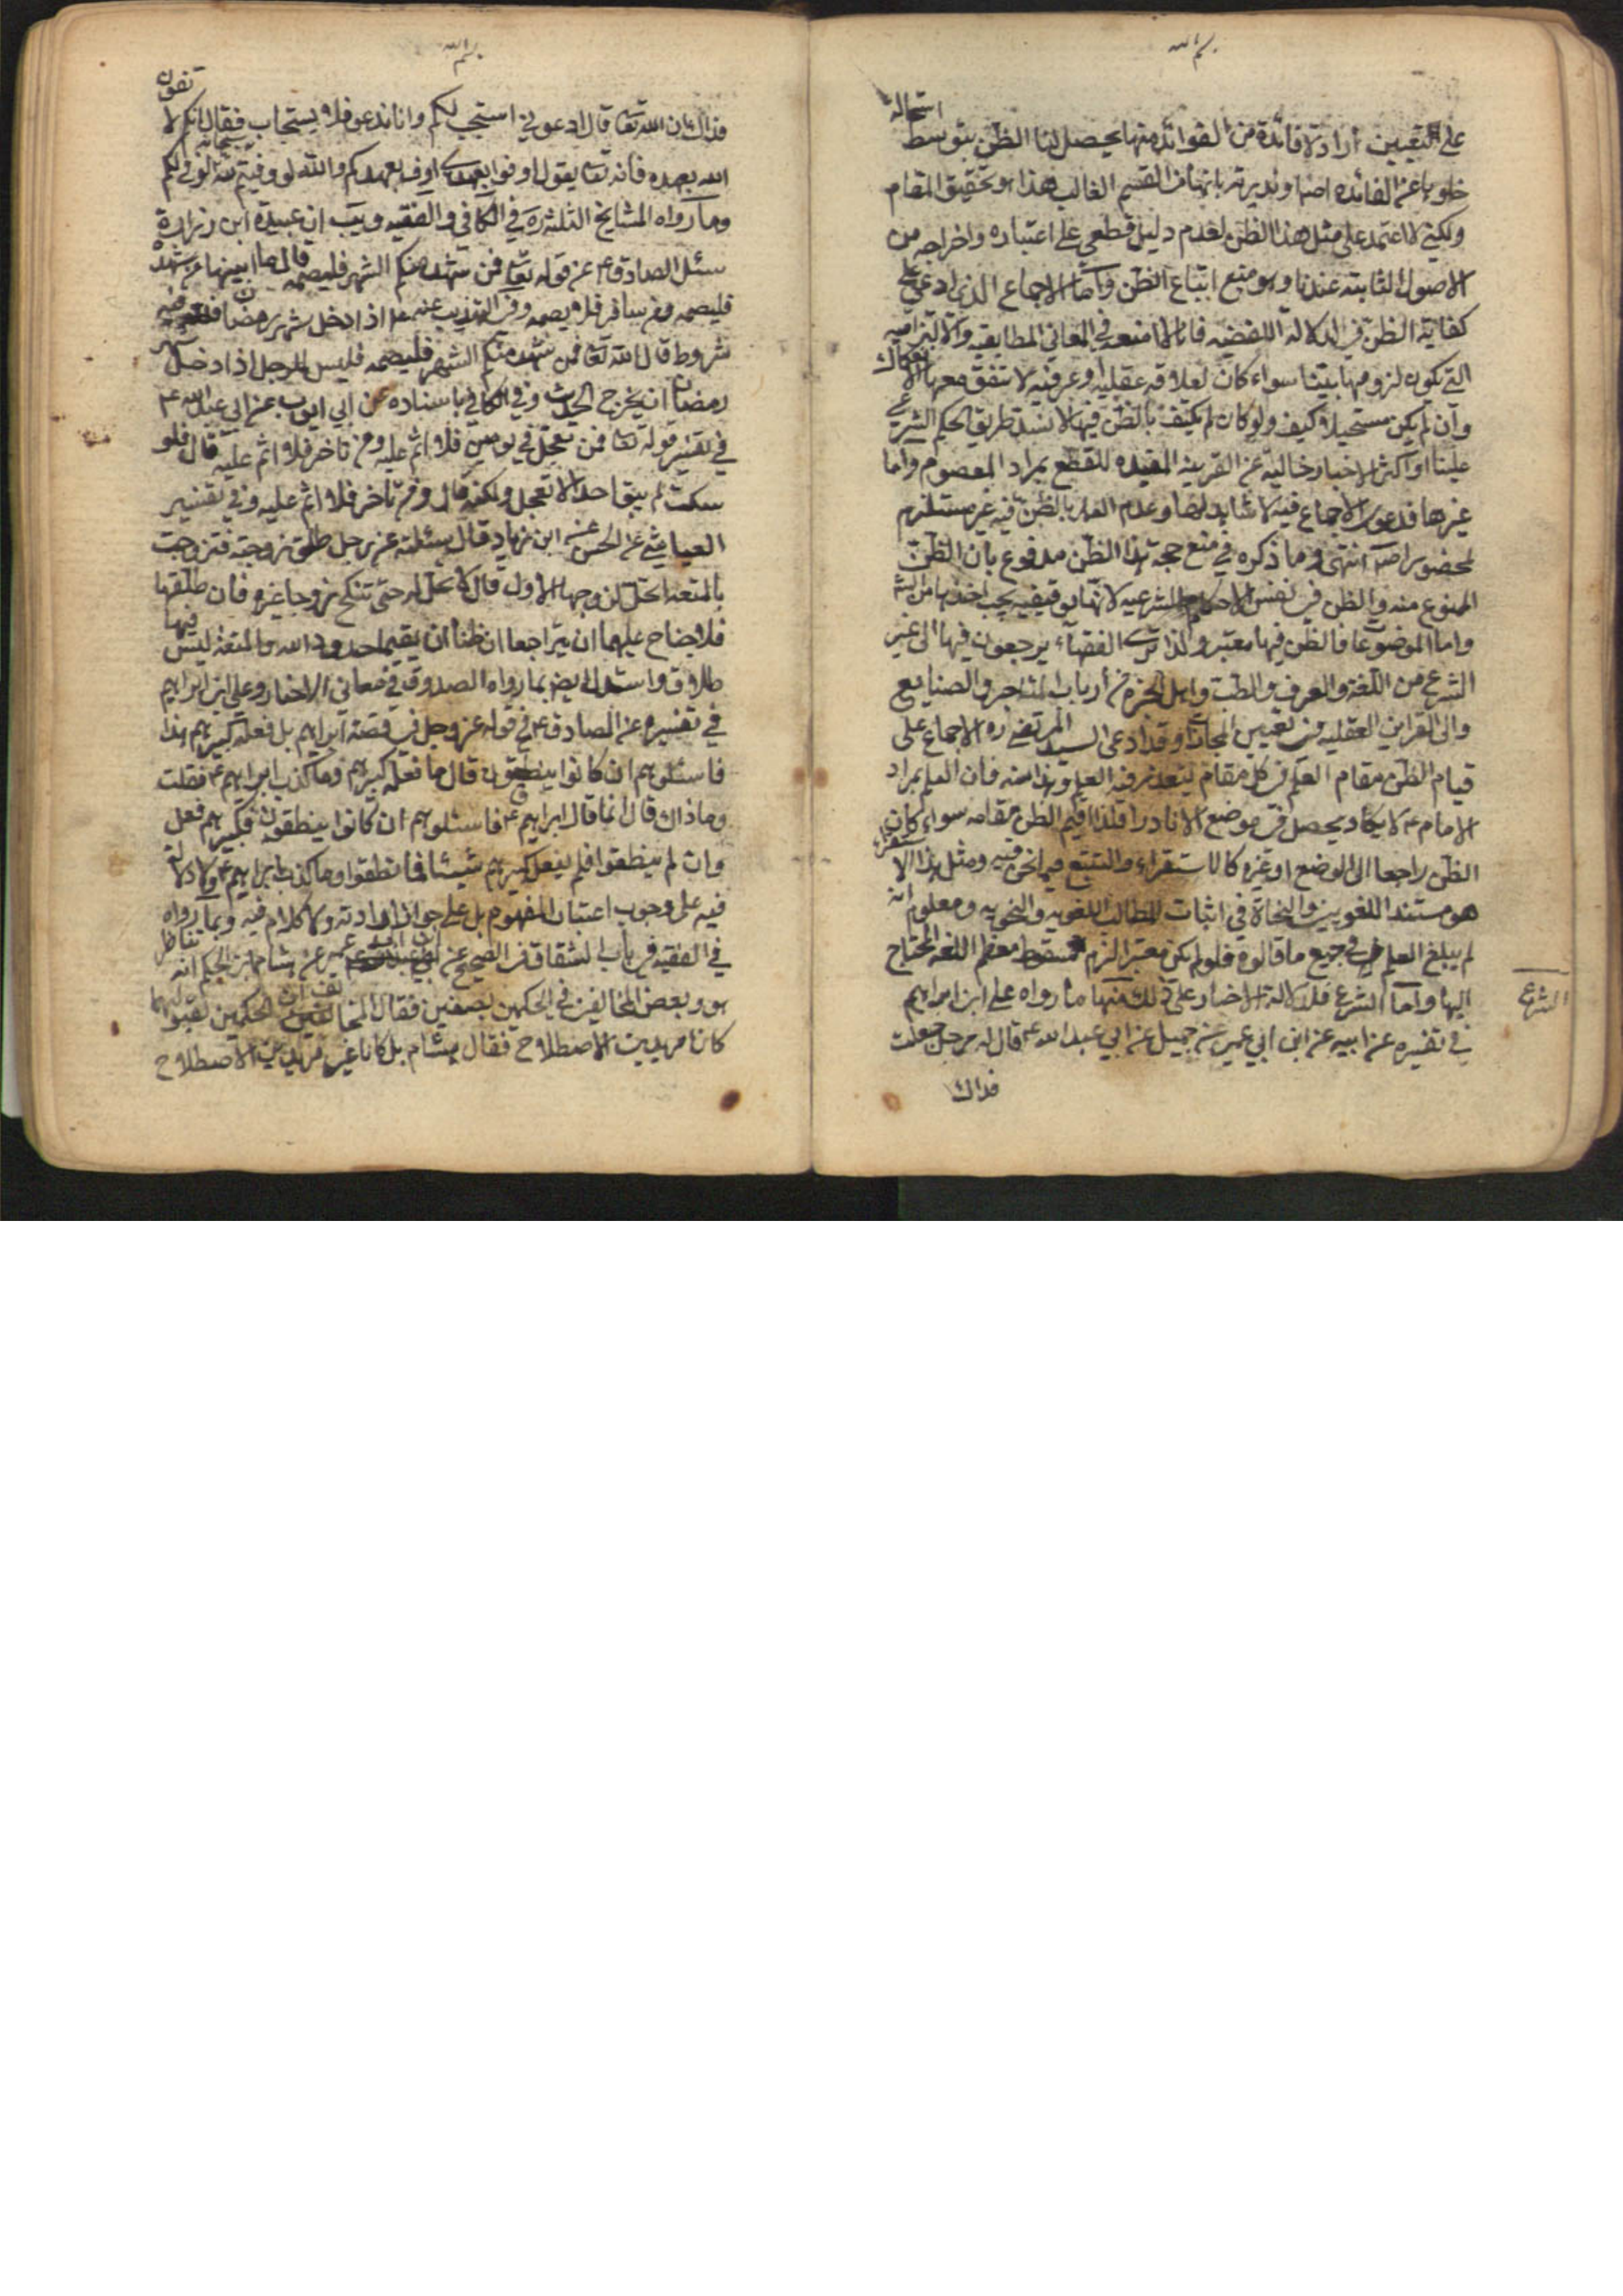 بسم الله
على التعيين ارادة فائدة من الفوائد منها يحصل لنا الظن بتوسط استحالة
خلوها عن الفائدة من القسم الغالب هذا هو تحقيق المقام
ولكني لا اعتمد على مثل هذا الظن لعدم دليل قطعي على اعتباره واخراجه من
الاصول الثابتة عندنا وهو منع اتباع الظن واما الاجماع الذي ادعي على
كفاية الظن في الدلالة اللفظيه فانا لا امنعه في المعاني المطابقيه والالتزاميه
التي يكون لزومها بينا سواء كان لعلاقه عقليه او عرفيه لا تتفق معها الانفكاك
وان لم يكن مستحيلا وكيف ولو كان لم يكتف بالظن فيها لانسد طريق الحكم الشرعي
علينا اذ اكثر الاخبار خالية عن القرينه المفيده للقطع بمراد المعصوم واما
غيرها فدعوى الاجماع فيه لا شاهد لها وعدم العمل بالظن فيه غير مستلزم
لمحضور اصلا انتهى وما ذكره في منع حجية هذا الظن مدفوع بان الظن
الممنوع منه هو الظن في نفس الاحكام الشرعيه لانها توقيفيه يجب اخذها من الش
واما الموضوعات فالظن فيها معتبر ولذا ترى الفقهاء يرجعون فيها الى غير
الشرع من اللغة والعرف والطب واهل الخبرة من أرباب المتاجر والصنايع
والى القراين العقليه في تعيين المجازات وقد ادعى السيد المرتضى ره الاجماع على
قيام الظن مقام العلم في كل مقام يتعذر فيه العلم وهذا منه فان العلم بمراد
الامام ع لا يكاد يحصل في موضع الا نادرا فلذا اقيم الظن مقامه سواء كان
الظن راجعا الى الوضع او غيره كالاستقراء والتتبع فيما نحن فيه ومثل هذا الاستقراء
هو مستند اللغويين والنحاة في اثبات المطالب اللغويه والنحويه ومعلوم انه
لم يبلغ العلم في جميع ما قالوه فلو لم يكن معتبرا لزم سقوط معظم اللغه المحتاج
اليها واما الشرع فلدلالة الاخبار على ذلك منها ما رواه علي ابن ابراهيم
الشرع
في تفسيره عن ابيه عن ابن ابي عمير عن جميل عن ابي عبد الله ع قال له رجل جعلت
فداك
بسم الله
فداك ان الله تعا قال ادعوني استجب لكم وانا ندعو فلا يستجاب فقال لانكم لا تفون
الله بعهده فانه تعا يقول اوفوا بعهدي اوف بعهدكم والله لو وفيتم لله لوفى لكم
وما رواه المشايخ الثلثه ره في الكافي والفقيه ويب ان عبيدة ابن زرارة
سئل الصادق ع عن قوله تعا فمن شهد منكم الشهر فليصمه قال ما ابينها من شهد
فليصمه ومن سافر فلا يصمه وفي التهذيب عنه ع اذا دخل شهر رمضان فلله فيه
شروط قال الله تعا فمن شهد منكم الشهر فليصمه فليس للرجل اذا دخل شهر
رمضان ان يخرج الحديث وفي الكافي باسناده عن ابي ايوب عن ابي عبد الله ع
في تفسير قوله تعا فمن تعجل في يومين فلا اثم عليه ومن تاخر فلا اثم عليه قال فلو
سكت لم يبق احد الا تعجل ولكنه قال ومن تاخر فلا اثم عليه وفي تفسير
العياشي عن الحسن ابن زياد قال سئلته عن رجل طلق زوجته فتزوجت
بالمتعة اتحل لزوجها الاول قال لا تحل له حتى تنكح زوجا غيره فان طلقها
فلا جناح عليهما ان يتراجعا ان ظنا ان يقيما حدود الله والمتعة ليس فيها
طلاق واستدل ايض بما رواه الصدوق في معاني الاخبار وعلي ابن ابراهيم
في تفسيره عن الصادق ع في قوله عز وجل في قصة ابراهيم بل فعله كبيرهم هذا
فاسئلوهم ان كانوا ينطقون قال ما فعله كبيرهم وما كذب ابراهيم ع فقلت
وما ذاك قال انما قال ابراهيم ع فاسئلوهم ان كانوا ينطقون فكبيرهم فعل
وان لم ينطقوا فلم يفعل كبيرهم شيئا فما نطقوا وما كذب ابراهيم ع ولا دلالة
فيه على وجوب اعتبار المفهوم بل على جواز ارادته ولا كلام فيه وبما رواه
في الفقيه في باب الشقاق في الصحيح عن ابن ابي عمير عن هشام ابن الحكم انه تناظر
هو وبعض المخالفين في الحكمين بصفين فقال المخالف ان الحكمين لقبولهما
كانا مريدين الاصطلاح فقال هشام بل كانا غير مريدين الاصطلاح